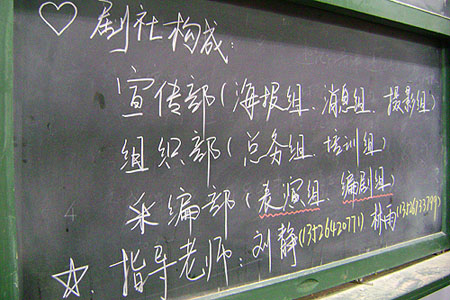 ♡ 剧社构成:
宣传部(海报组、消息组、摄影组)
组织部(总务组、培训组)
采编部(表演组、编剧组)
☆. 指导老师: 刘静(13526420771) 林雨